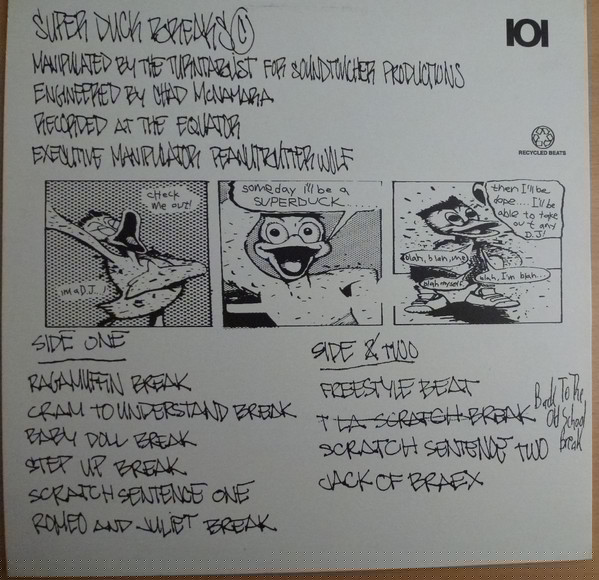 SUPER DUCK BREAKS ©
101
MANIPULATED BY THE TURNTABLIST FOR SOUNDTWCHER PRODUCTIONS
ENGINEERED BY CHAD MCNAMARA
RECORDED AT THE EQUATOR
EXECUTIVE MANIPULATOR PEANUTBUTTER WOLF
RECYCLED BEATS
CHECK ME OUT!
im a D.J...!
someday I'll be a
SUPERDUCK......
then I'll be
dope.... I'll be
able to take
out any
D.J!
blah, blah, me
blah myself
blah, I'm blah...
SIDE ONE
RAGAMUFFIN BREAK
CRAM TO UNDERSTAND BREAK
BABY DOLL BREAK
STEP UP BREAK
SCRATCH SENTENCE ONE
ROMEO AND JULIET BREAK
SIDE & TWO
FREESTYLE BEAT
LA SCRATCH BREAK
Back To The
Old School
Break
SCRATCH SENTENCE TWO
JACK OF BRAEX